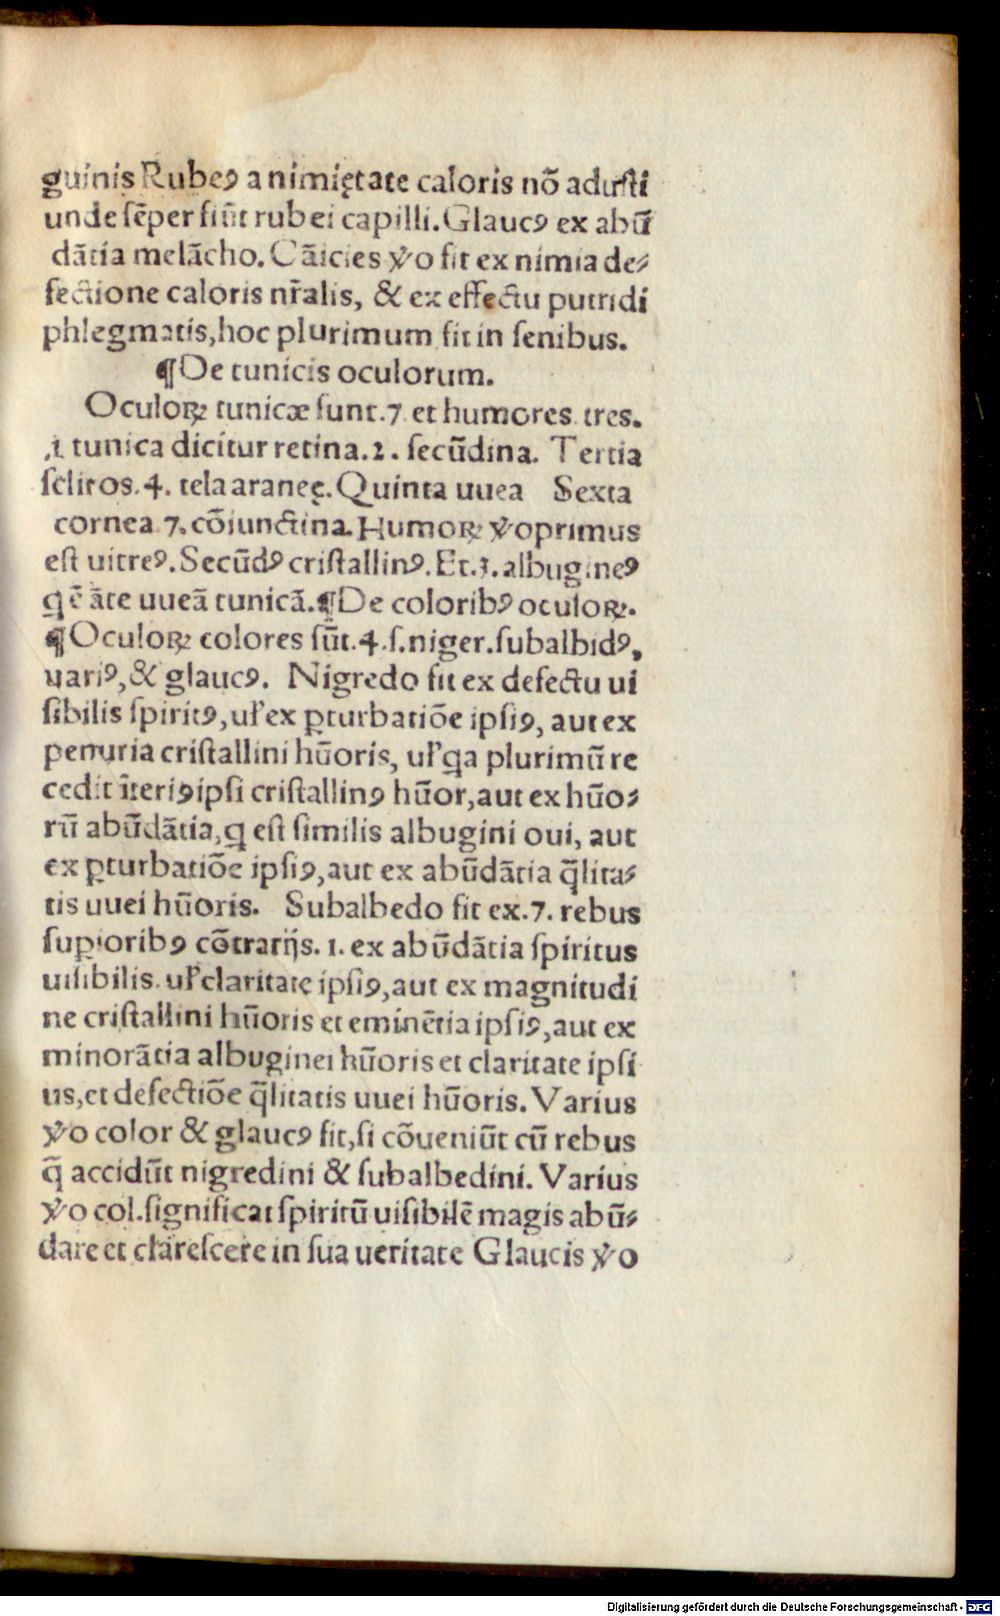 guinis Rubeꝯ a nimiętate caloris nõ adusti
unde sẽper fiũt rubei capilli. Glaucꝯ ex abũ
dãtia melãcho. Cãicies ꝟo fit ex nimia de⸗
fectione caloris nr̃alis, & ex effectu putridi
phlegmatis, hoc plurimum fit in senibus.
¶De tunicis oculorum.
Oculoꝝ tunicæ sunt .7 et humores tres.
.1 tunica dicitur retina .2. secũdina. Tertia
scliros .4. tela araneę. Quinta uuea Sexta
cornea 7. cõiunctina. Humoꝝ ꝟo primus
est uitreꝯ. Secũdꝯ cristallinꝯ. Et .3. albugineꝯ
q ẽ ãte uueã tunicã. ¶De coloribꝯ oculoꝝ.
¶Oculoꝝ colores sũt .4. s. niger. subalbidꝯ,
uariꝯ, & glaucꝯ. Nigredo fit ex defectu ui
sibilis spiritꝯ, uł ex ꝑturbatiõe ipsiꝯ, aut ex
penuria cristallini hũoris, uł ꝗa plurimũ re
cedit ĩteriꝯ ipsi cristallinꝯ hũor, aut ex hũo⸗
rũ abũdãtia, ꝗ est similis albugini oui, aut
ex ꝑturbatiõe ipsiꝯ, aut ex abũdãtia q̃lita⸗
tis uuei hũoris. Subalbedo fit ex .7. rebus
suꝑioribꝯ cõtrarijs. 1. ex abũdãtia spiritus
uisibilis. uł claritate ipsiꝯ, aut ex magnitudi
ne cristallini hũoris et eminẽtia ipsiꝯ, aut ex
minorãtia albuginei hũoris et claritate ipsi
us, et defectiõe q̃litatis uuei hũoris. Varius
ꝟo color & glaucꝯ fit, si cõueniũt cũ rebus
q̃ accidũt nigredini & subalbedini. Varius
ꝟo col. significat spiritũ uisibilẽ magis abũ⸗
dare et clarescere in sua ueritate Glaucis ꝟo
Digitalisierung gefördert durch die Deutsche Forschungsgemeinschaft - DFG